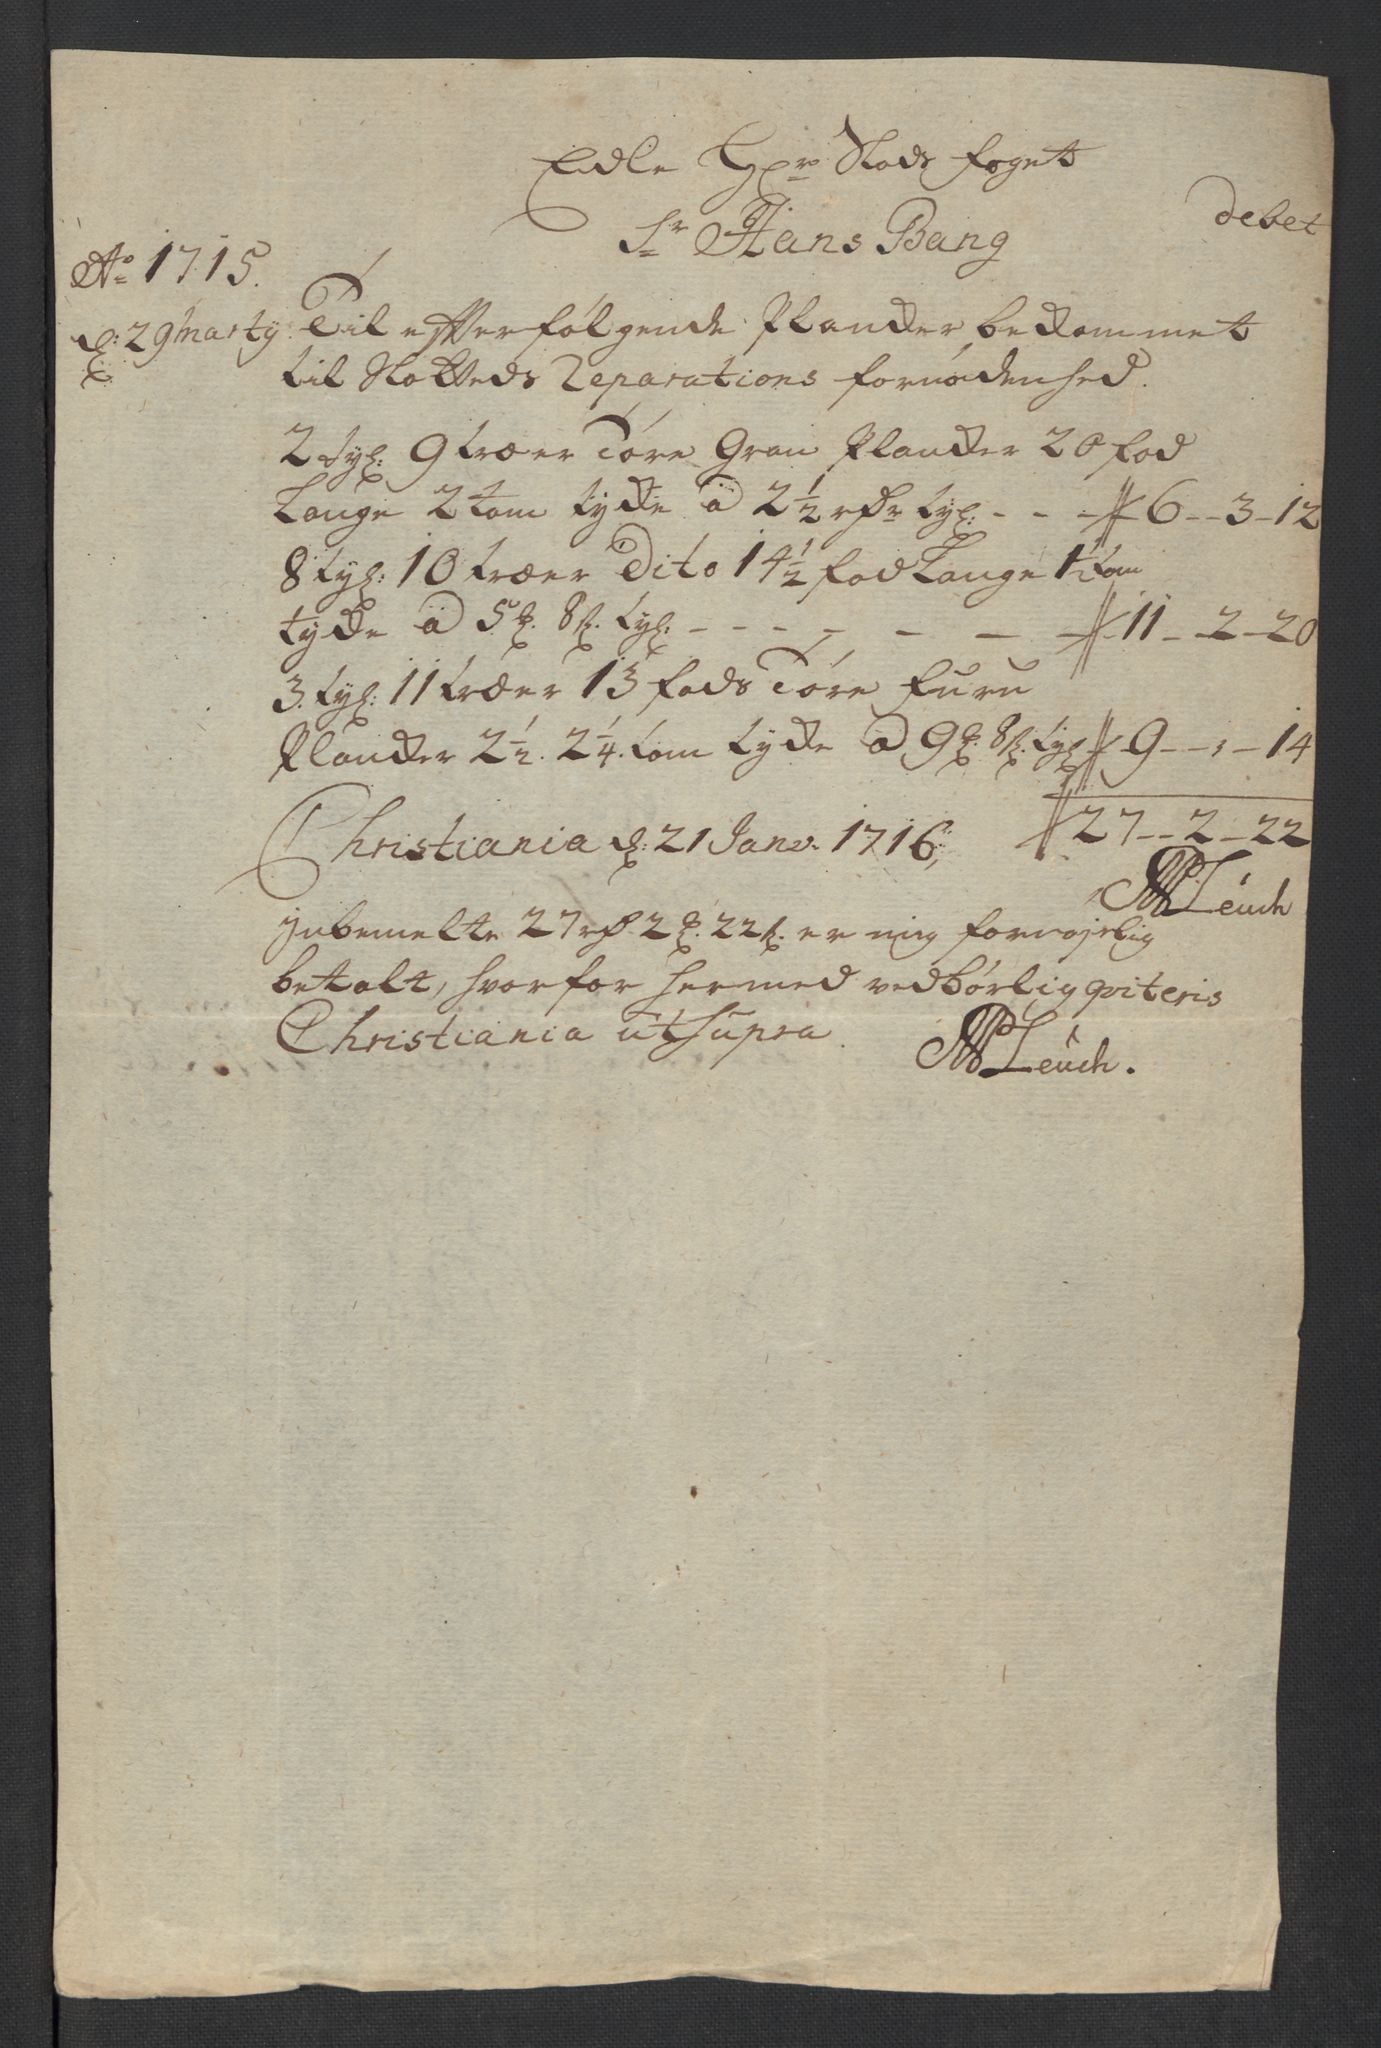 Edle Hr Slods foget
debet
Sr Hans Bang
Ao 1715.
d: 29 Marty Til efterfølgende Plancker bekommet
til Slotteds Reparations fornødenhed.
2 tyl: 9 træer Tóre Gran Plancker 20 fod
Lange 2 tom tycke a 2½ rdr tyl: - - - 6 - 3 - 12
8 tyl: 10 træer Dito 14½ fod Lange 1½ tom
tycke a 5 8 s. tyl: - - - - - - - 11 - 2 - 20
3. tyl: 11 træer 13 fods Tóre Furu
Plancker 2½. 2¼. tom tycke a 9 8 s. tyl 9 - , - 14
27 - 2 - 22
Christiania d: 21 Janv. 1716,
Leuch
Inbemelte 27 rd 2 22 s. er mig fornøjelig
betalt, hvorfor hermed vedbórlig qviteris
Christiania ut supra.
Leuch.